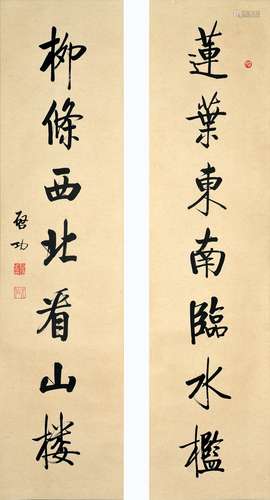 蓮葉東南臨水檻
柳條西北看山楼
啓功